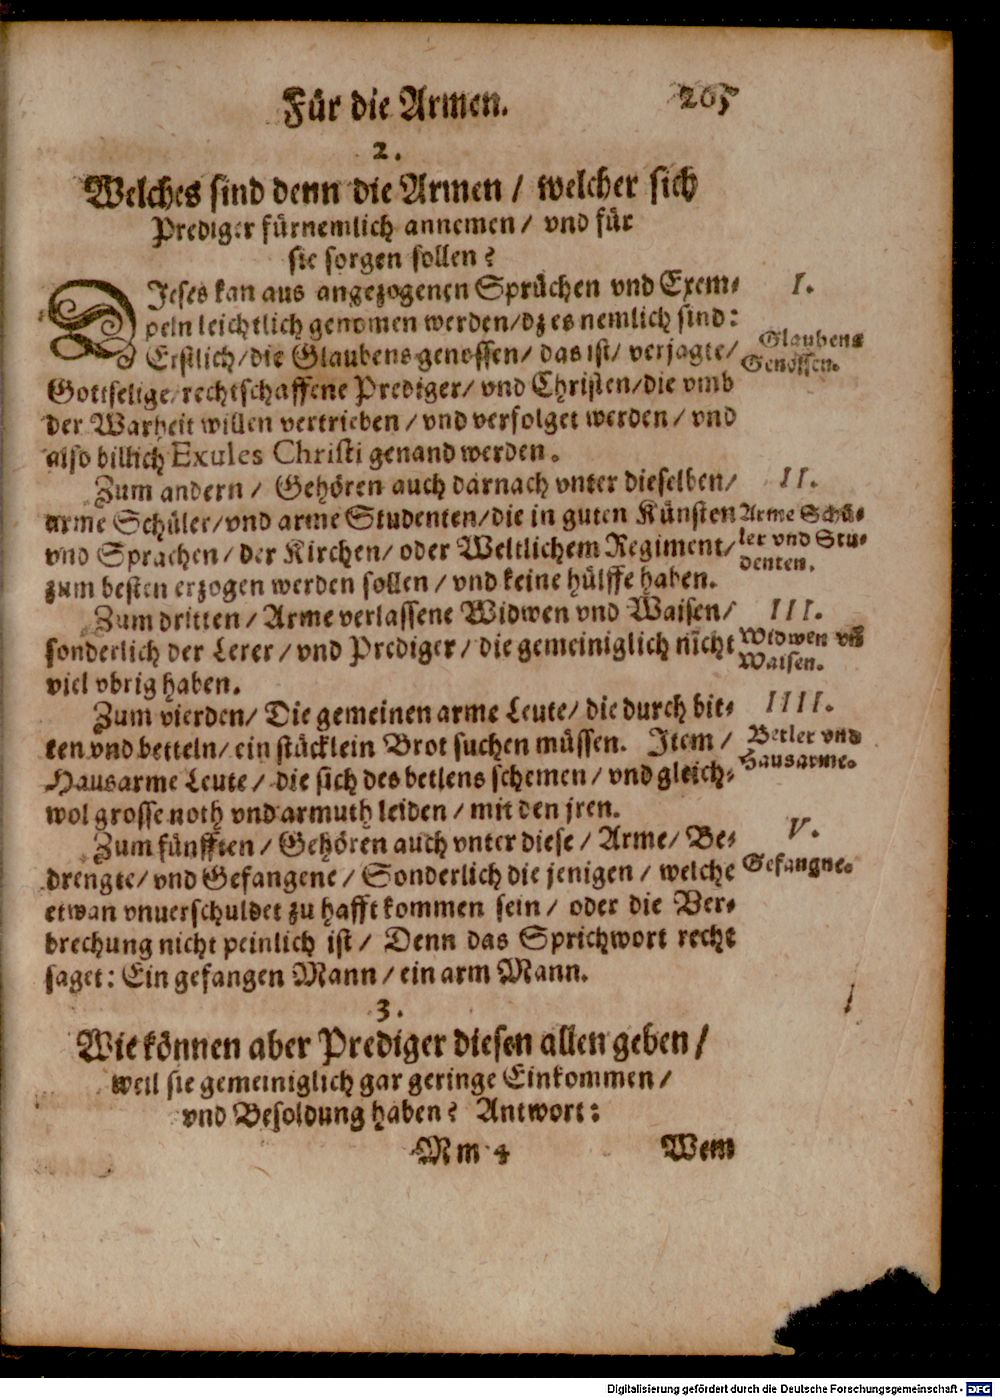 Für die Armen. 265
2.
Welches sind denn die Armen / welcher sich
Prediger fürnemlich annemen / vnd für
sie sorgen sollen?
DIeses kan aus angezogenen Sprüchen vnd Exem-
peln leichtlich genomen werden / dz es nemlich sind:
Erstlich / die Glaubensgenossen / das ist / verjagte /
Gottselige / rechtschaffene Prediger / vnd Christen / die vmb
der Warheit willen vertrieben / vnd verfolget werden / vnd
also billich Exules Christi genand werden.
I.
Glaubens
Genossen.
Zum andern / Gehören auch darnach vnter dieselben /
arme Schüler / vnd arme Studenten / die in guten Künsten
vnd Sprachen / der Kirchen / oder Weltlichem Regiment /
zum besten erzogen werden sollen / vnd keine hülffe haben.
II.
Arme Schü-
ler vnd Stu-
denten.
Zum dritten / Arme verlassene Widwen vnd Waisen /
sonderlich der Lerer / vnd Prediger / die gemeiniglich nicht
viel vbrig haben.
III.
Widwen vñ
Waisen.
Zum vierden / Die gemeinen arme Leute / die durch bit-
ten vnd betteln / ein stücklein Brot suchen müssen. Item /
Hausarme Leute / die sich des betlens schemen / vnd gleich-
wol grosse noth vnd armuth leiden / mit den jren.
IIII.
Betler vnd
Hausarme.
Zum fünfften / Gehören auch vnter diese / Arme / Be-
drengte / vnd Gefangene / Sonderlich die jenigen / welche
etwan vnuerschuldet zu hafft kommen sein / oder die Ver-
brechung nicht peinlich ist / Denn das Sprichwort recht
saget: Ein gefangen Mann / ein arm Mann.
V.
Gefangne.
3.
Wie können aber Prediger diesen allen geben /
weil sie gemeiniglich gar geringe Einkommen /
vnd Besoldung haben? Antwort:
Mm 4 Wem
Digitalisierung gefördert durch die Deutsche Forschungsgemeinschaft - DFG